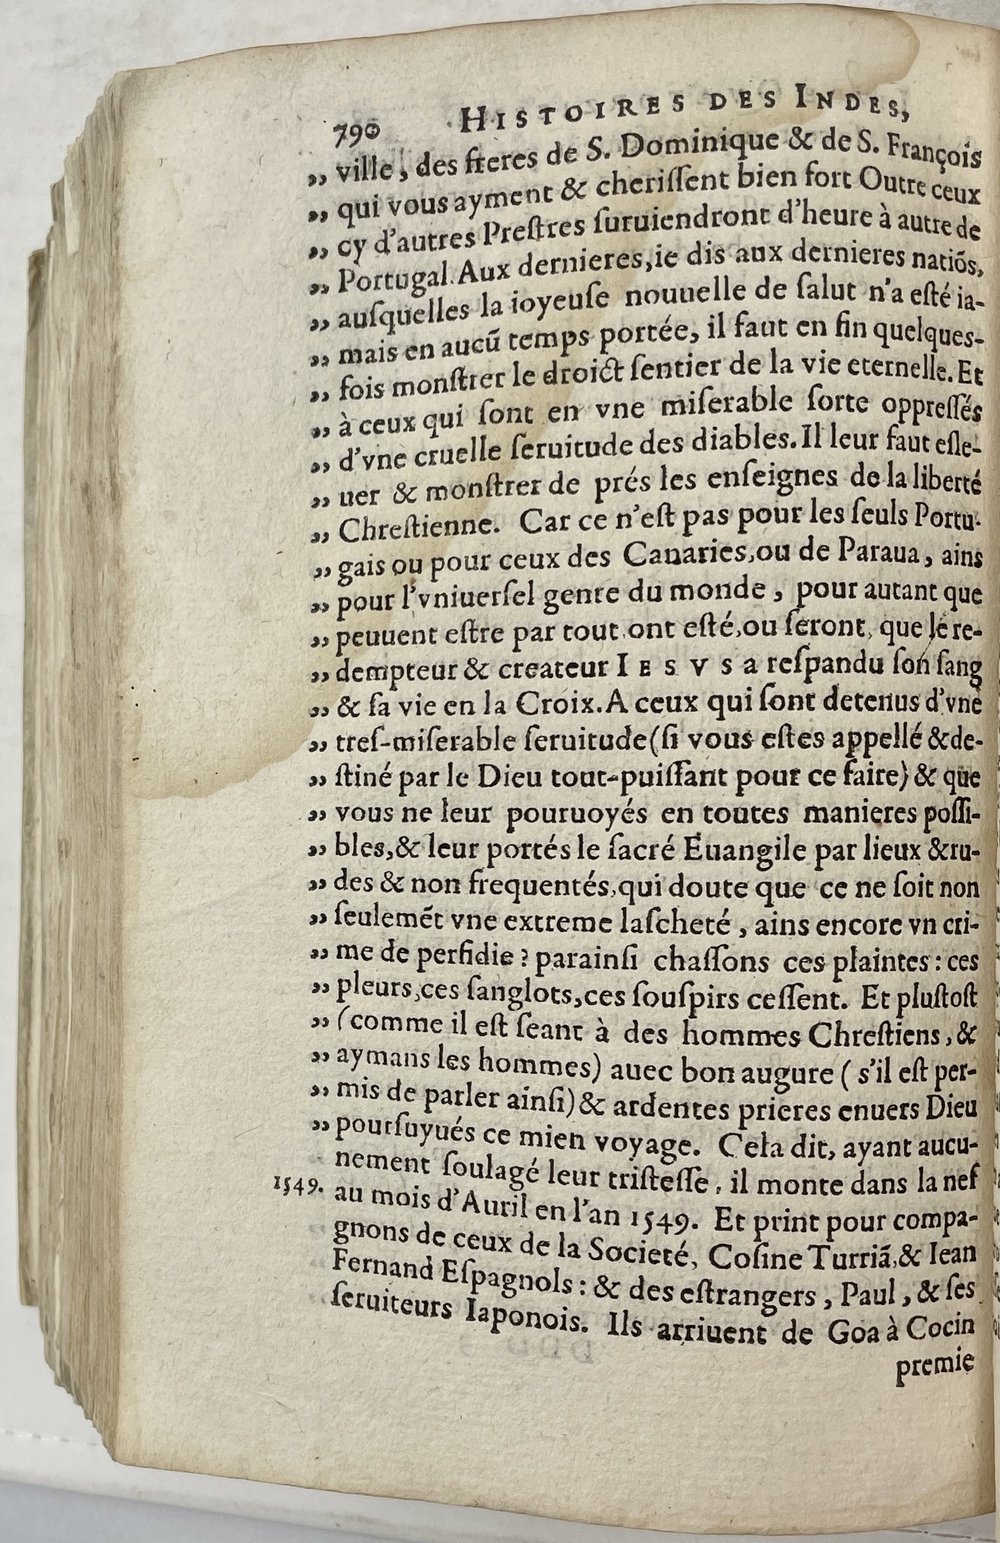 790 HISTOIRES DES INDES,
„ ville, des freres de S. Dominique & de S. François
„ qui vous ayment & cheriſſent bien fort Outre ceux
„ cy d'autres Preſtres ſuruiendront d'heure à autre de
„ Portugal. Aux dernieres, ie dis aux dernieres natiõs,
„ auſquelles la ioyeuſe nouuelle de ſalut n'a eſté ia-
„ mais en aucũ temps portée, il faut en fin quelques-
„ fois monſtrer le droict ſentier de la vie eternelle. Et
„ à ceux qui ſont en vne miſerable ſorte oppreſſés
„ d'vne cruelle ſeruitude des diables. Il leur faut eſle-
„ uer & monſtrer de prés les enſeignes de la liberté
„ Chreſtienne. Car ce n'eſt pas pour les ſeuls Portu-
„ gais ou pour ceux des Canaries, ou de Paraua, ains
„ pour l'vniuerſel genre du monde, pour autant que
„ peuuent eſtre par tout ont eſté, ou ſeront, que le re-
„ dempteur & createur IESVS a reſpandu ſon ſang
„ & ſa vie en la Croix. A ceux qui ſont detenus d'vne
„ treſ-miſerable ſeruitude (ſi vous eſtes appellé & de-
„ ſtiné par le Dieu tout-puiſſant pour ce faire) & que
„ vous ne leur pouruoyés en toutes manieres poſſi-
„ bles, & leur portés le ſacré Euangile par lieux & ru-
„ des & non frequentés, qui doute que ce ne ſoit non
„ ſeulemẽt vne extreme laſcheté, ains encore vn cri-
„ me de perfidie ? parainſi chaſſons ces plaintes : ces
„ pleurs, ces ſanglots, ces ſouſpirs ceſſent. Et pluſtoſt
„ (comme il eſt ſeant à des hommes Chreſtiens, &
„ aymans les hommes) auec bon augure ( s'il eſt per-
„ mis de parler ainſi) & ardentes prieres enuers Dieu
„ pourſuyués ce mien voyage. Cela dit, ayant aucu-
nement ſoulagé leur triſteſſe, il monte dans la nef
1549. au mois d'Auril en l'an 1549. Et print pour compa-
gnons de ceux de la Societé, Coſine Turriã, & Iean
Fernand Eſpagnols : & des eſtrangers, Paul, & ſes
ſeruiteurs Iaponois. Ils arriuent de Goa à Cocin
premie